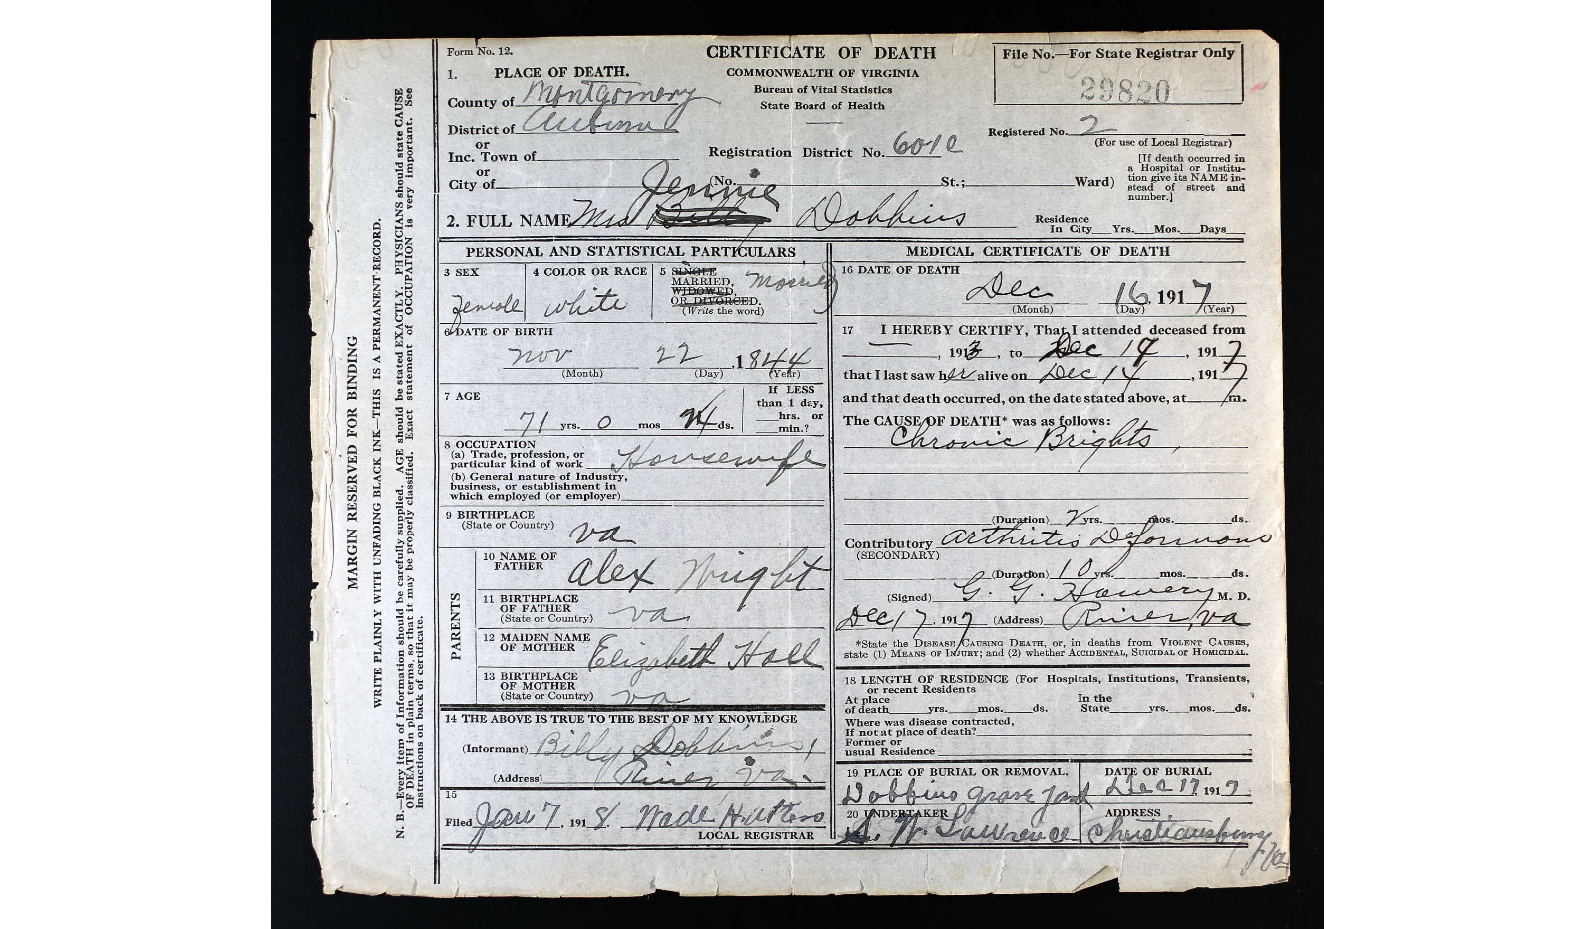 MARGIN RESERVED FOR BINDING
WRITE PLAINLY WITH UNFADING BLACK INK—THIS IS A PERMANENT RECORD.
N. B.—Every item of Information should be carefully supplied. AGE should be stated EXACTLY. PHYSICIANS should state CAUSE
OF DEATH in plain terms, so that it may be properly classified. Exact statement of OCCUPATION is very important. See
Instructions on back of certificate.
Form No. 12.
CERTIFICATE OF DEATH
COMMONWEALTH OF VIRGINIA
Bureau of Vital Statistics
State Board of Health
File No.—For State Registrar Only
29820
1. PLACE OF DEATH.
County of Montgomery
District of Auburn
or
Inc. Town of
or
City of
Registration District No. 601C
Registered No. 2
(For use of Local Registrar)
[If death occurred in
a Hospital or Institu-
tion give its NAME in-
stead of street and
number.]
(No. St.; Ward)
Jennie
2. FULL NAME Mrs Bill Dobbins
Residence
In City Yrs. Mos. Days
PERSONAL AND STATISTICAL PARTICULARS
3 SEX
Female
4 COLOR OR RACE
White
5 SINGLE
MARRIED,
WIDOWED,
OR DIVORCED.
(Write the word)
Married
6 DATE OF BIRTH
Nov 22, 1844
(Month) (Day) (Year)
7 AGE
71 yrs. 0 mos 24 ds.
If LESS
than 1 day,
hrs. or
min.?
8 OCCUPATION
(a) Trade, profession, or
particular kind of work Housewife
(b) General nature of Industry,
business, or establishment in
which employed (or employer)
9 BIRTHPLACE
(State or Country) Va
PARENTS
10 NAME OF
FATHER Alex Wright
11 BIRTHPLACE
OF FATHER
(State or Country) Va
12 MAIDEN NAME
OF MOTHER Elizabeth Hall
13 BIRTHPLACE
OF MOTHER
(State or Country) Va
14 THE ABOVE IS TRUE TO THE BEST OF MY KNOWLEDGE
(Informant) Billy Dobbins,
(Address) Riner Va.
15
Filed Jan 7, 1918. Wade
LOCAL REGISTRAR
MEDICAL CERTIFICATE OF DEATH
16 DATE OF DEATH
Dec 16, 1917
(Month) (Day) (Year)
17 I HEREBY CERTIFY, That I attended deceased from
, 1913, to Dec 14, 1917
that I last saw her alive on Dec 14, 1917
and that death occurred, on the date stated above, at m.
The CAUSE OF DEATH* was as follows:
Chronic Brights,
(Duration) yrs. mos. ds.
Contributory Arthritis Deformans
(SECONDARY)
(Duration) 10 yrs. mos. ds.
(Signed) G. G. Howery M. D.
Dec 17, 1917 (Address) Riner, Va
*State the DISEASE CAUSING DEATH, or, in deaths from VIOLENT CAUSES,
state (1) MEANS OF INJURY; and (2) whether ACCIDENTAL, SUICIDAL OR HOMICIDAL.
18 LENGTH OF RESIDENCE (For Hospitals, Institutions, Transients,
or recent Residents
At place
of death yrs. mos. ds.
In the
State yrs. mos. ds.
Where was disease contracted,
If not at place of death?
Former or
usual Residence
19 PLACE OF BURIAL OR REMOVAL.
Dobbins grave yard
DATE OF BURIAL
Dec 17, 1917
20 UNDERTAKER
W. Lawrence
ADDRESS
Christiansburg
Va